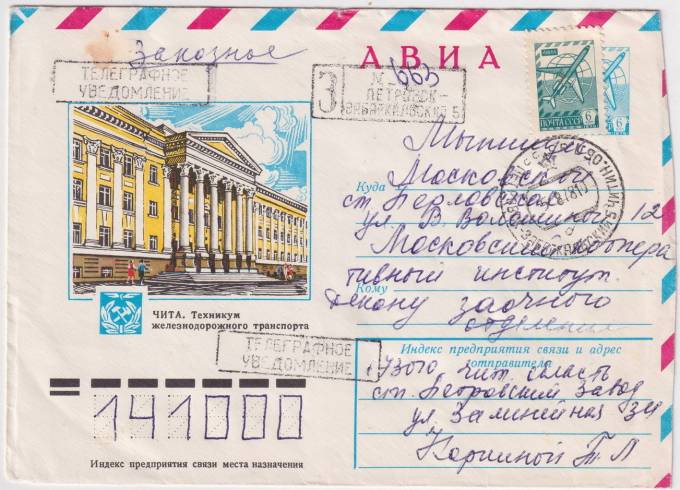 Заказное
АВИА
ТЕЛЕГРАФНОЕ
УВЕДОМЛЕНИЕ
З
№ 663
ПЕТРОВСК-
ЗАБАЙКАЛЬСКИЙ 5
АВИА
ПОЧТА СССР 6
6
Мытищи
Московской
Куда
ст. Перловская
ул. В. Волошиной 12
Московский коопера
тивный институт.
Кому
Декану заочного
отделения
ЧИТА. Техникум
железнодорожного транспорта
ТЕЛЕГРАФНОЕ
УВЕДОМЛЕНИЕ
Индекс предприятия связи и адрес
отправителя
Чит область
ст. Петровский Завод
ул.
Т Л
141000
Индекс предприятия связи места назначения